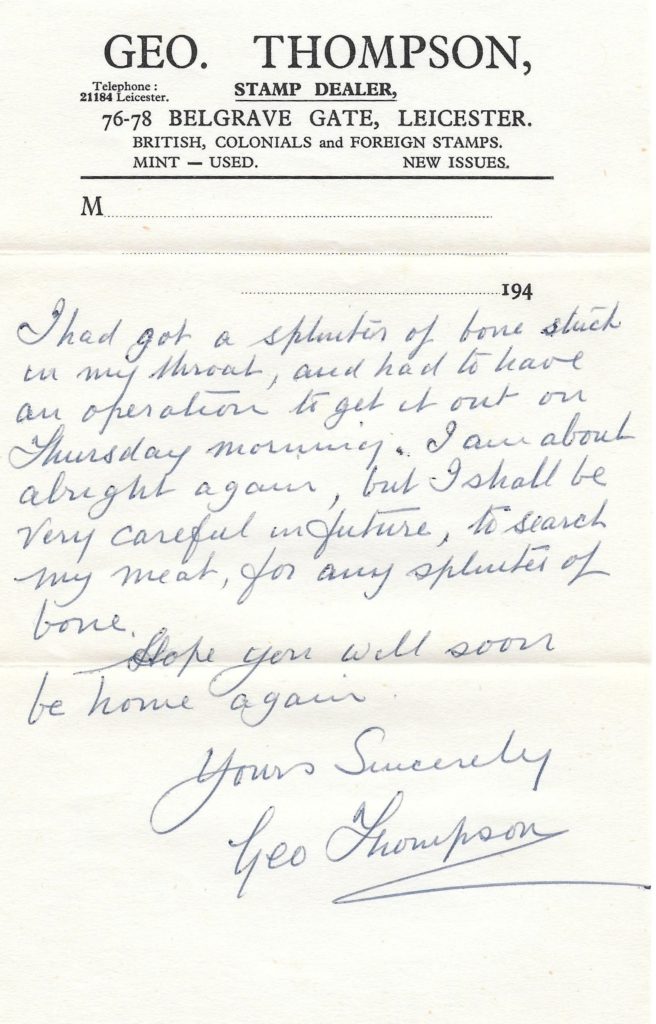 GEO. THOMPSON,
Telephone :
21184 Leicester.
STAMP DEALER,
76-78 BELGRAVE GATE, LEICESTER.
BRITISH, COLONIALS and FOREIGN STAMPS.
MINT — USED. NEW ISSUES.
M
194
I had got a splinter of bone stuck
in my throat, and had to have
an operation to get it out on
Thursday morning. I am about
alright again, but I shall be
very careful in future, to search
my meat, for any splinter of
bone.
Hope you will soon
be home again.
Yours Sincerely
Geo Thompson